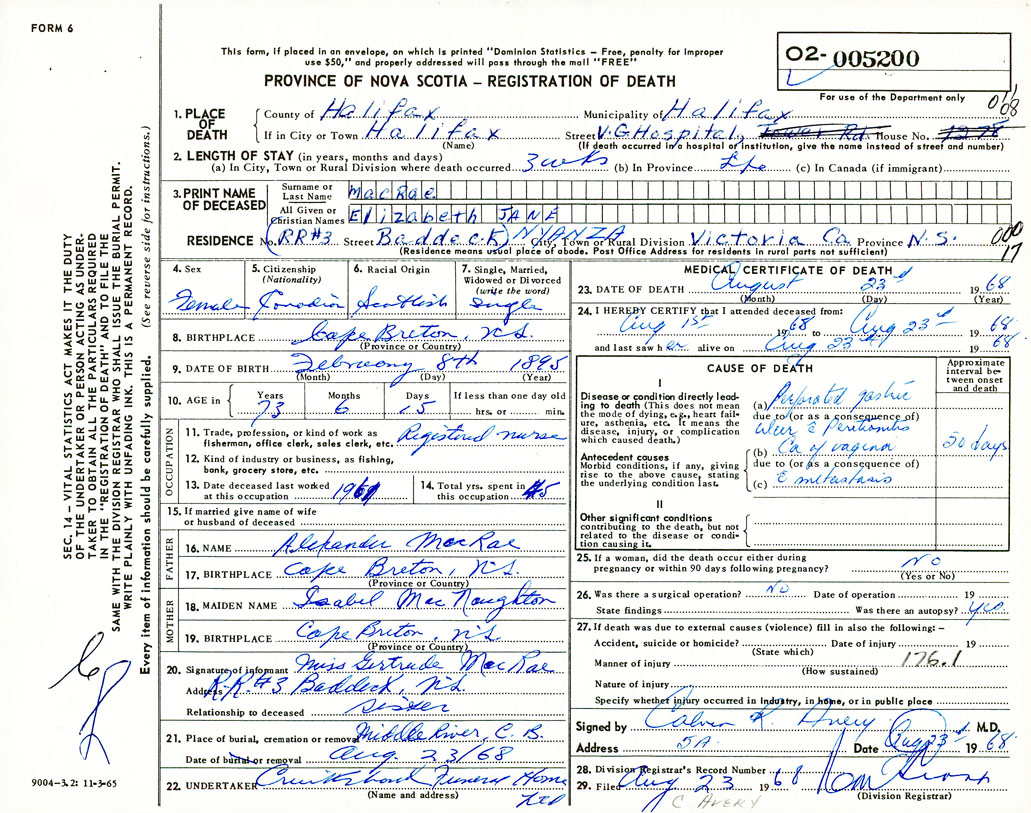 FORM 6
This form, if placed in an envelope, on which is printed "Dominion Statistics – Free, penalty for improper
use $50," and properly addressed will pass through the mail "FREE"
O2- 005200
PROVINCE OF NOVA SCOTIA – REGISTRATION OF DEATH
For use of the Department only
1. PLACE OF DEATH
County of Halifax Municipality of Halifax
If in City or Town Halifax Street V.G Hospital, Tower Rd. House No. 1278
(Name) (If death occurred in a hospital or institution, give the name instead of street and number)
2. LENGTH OF STAY (in years, months and days)
(a) In City, Town or Rural Division where death occurred 3 wks (b) In Province Life (c) In Canada (if immigrant)
3. PRINT NAME OF DECEASED
Surname or Last Name MacRae
All Given or Christian Names Elizabeth JANE
RESIDENCE No. (RR#3 Street Baddeck) NYANZA City, Town or Rural Division Victoria Co Province N.S.
(Residence means usual place of abode. Post Office Address for residents in rural parts not sufficient)
4. Sex Female
5. Citizenship (Nationality) Canadian
6. Racial Origin Scottish
7. Single, Married, Widowed or Divorced (write the word) Single
8. BIRTHPLACE Cape Breton, N.S.
(Province or Country)
9. DATE OF BIRTH February 8th 1895
(Month) (Day) (Year)
10. AGE in Years 73 Months 6 Days 15 If less than one day old hrs. or min.
OCCUPATION
11. Trade, profession, or kind of work as fisherman, office clerk, sales clerk, etc. Registered nurse
12. Kind of industry or business, as fishing, bank, grocery store, etc.
13. Date deceased last worked at this occupation 1961
14. Total yrs. spent in this occupation 45
15. If married give name of wife or husband of deceased
FATHER
16. NAME Alexander MacRae
17. BIRTHPLACE Cape Breton, N.S.
(Province or Country)
MOTHER
18. MAIDEN NAME Isabel MacNaughton
19. BIRTHPLACE Cape Breton, N.S.
(Province or Country)
20. Signature of informant Miss Gertrude MacRae
Address R.R.#3 Baddeck, N.S.
Relationship to deceased Sister
21. Place of burial, cremation or removal Middle River, C.B.
Date of burial or removal Aug. 23/68
22. UNDERTAKER Cruikshank Funeral Home Ltd
(Name and address)
MEDICAL CERTIFICATE OF DEATH
23. DATE OF DEATH August 23rd 1968
(Month) (Day) (Year)
24. I HEREBY CERTIFY that I attended deceased from:
Aug 1st 1968 to Aug 23rd 1968
and last saw her alive on Aug 23rd 1968
CAUSE OF DEATH
Approximate interval between onset and death
I
Disease or condition directly leading to death (This does not mean the mode of dying, e.g., heart failure, asthenia, etc. It means the disease, injury, or complication which caused death.)
(a) Perforated gastric
due to (or as a consequence of)
ulcer c̄ Peritonitis
Antecedent causes
Morbid conditions, if any, giving rise to the above cause, stating the underlying condition last.
(b) Ca of vagina 50 days
due to (or as a consequence of)
(c) c̄ metastasis
II
Other significant conditions contributing to the death, but not related to the disease or condition causing it.
25. If a woman, did the death occur either during pregnancy or within 90 days following pregnancy? NO
(Yes or No)
26. Was there a surgical operation? NO Date of operation 19
State findings Was there an autopsy? Yes
27. If death was due to external causes (violence) fill in also the following: –
Accident, suicide or homicide? Date of injury 19
(State which)
Manner of injury 176.1
(How sustained)
Nature of injury
Specify whether injury occurred in Industry, in home, or in public place
Signed by Calvin R. Avery M.D.
Address 5A Date Aug 23rd 1968
28. Division Registrar's Record Number
29. Filed Aug 23 1968
C AVERY (Division Registrar)
SEC. 14 – VITAL STATISTICS ACT MAKES IT THE DUTY
OF THE UNDERTAKER OR PERSON ACTING AS UNDER-
TAKER TO OBTAIN ALL THE PARTICULARS REQUIRED
IN THE "REGISTRATION OF DEATH" AND TO FILE THE
SAME WITH THE DIVISION REGISTRAR WHO SHALL ISSUE THE BURIAL PERMIT.
WRITE PLAINLY WITH UNFADING INK. THIS IS A PERMANENT RECORD.
Every item of information should be carefully supplied. (See reverse side for instructions.)
9004-3.2: 11-3-65